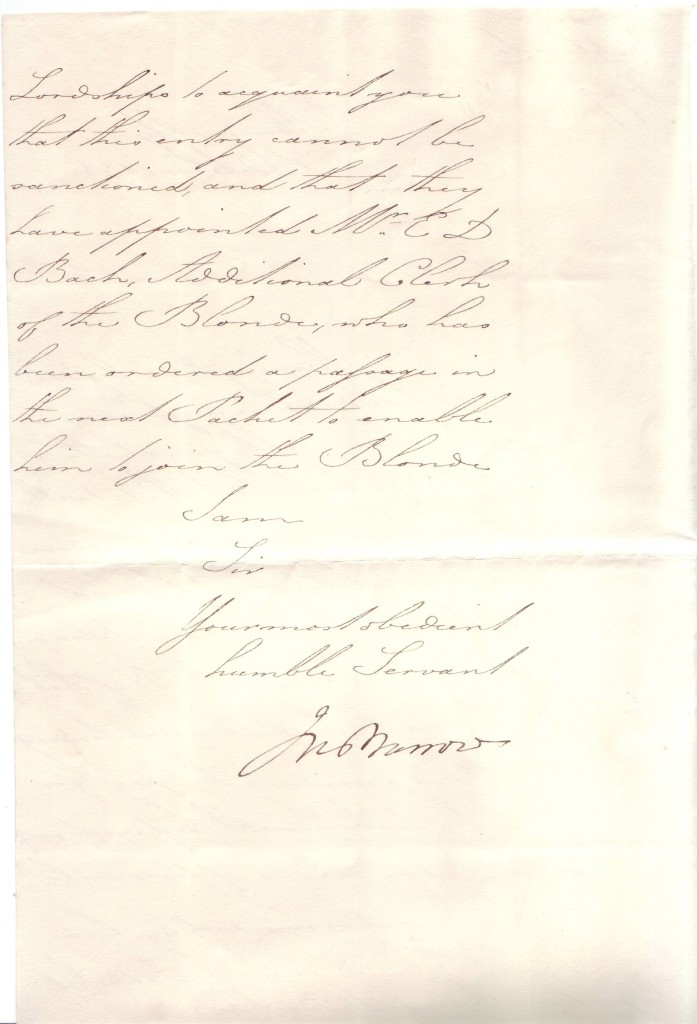 Lordships to acquaint you
that this entry cannot be
sanctioned, and that they
have appointed Mr. C D
Bach, Additional Clerk
of the Blonde, who has
been ordered a passage in
the next Packet to enable
him to join the Blonde
I am
Sir
Your most obedient
humble Servant
Jno Barrow